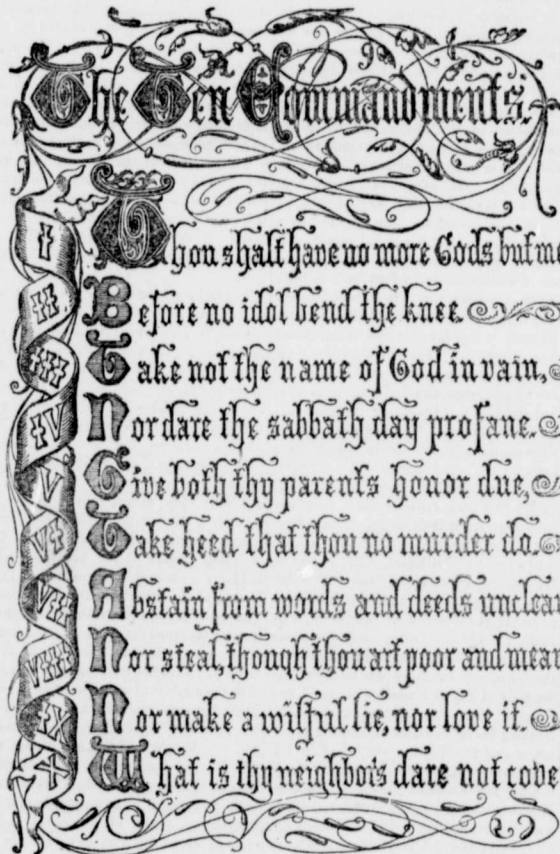 The Ten Commandments.
I
Thou shalt have no more Gods but me
II
Before no idol bend the knee.
III
Take not the name of God in vain,
IV
Nor dare the sabbath day profane.
V
Give both thy parents honor due,
VI
Take heed that thou no murder do.
VII
Abstain from words and deeds unclean
VIII
Nor steal, though thou art poor and mean
IX
Nor make a wilful lie, nor love it.
X
What is thy neighbor's dare not cove